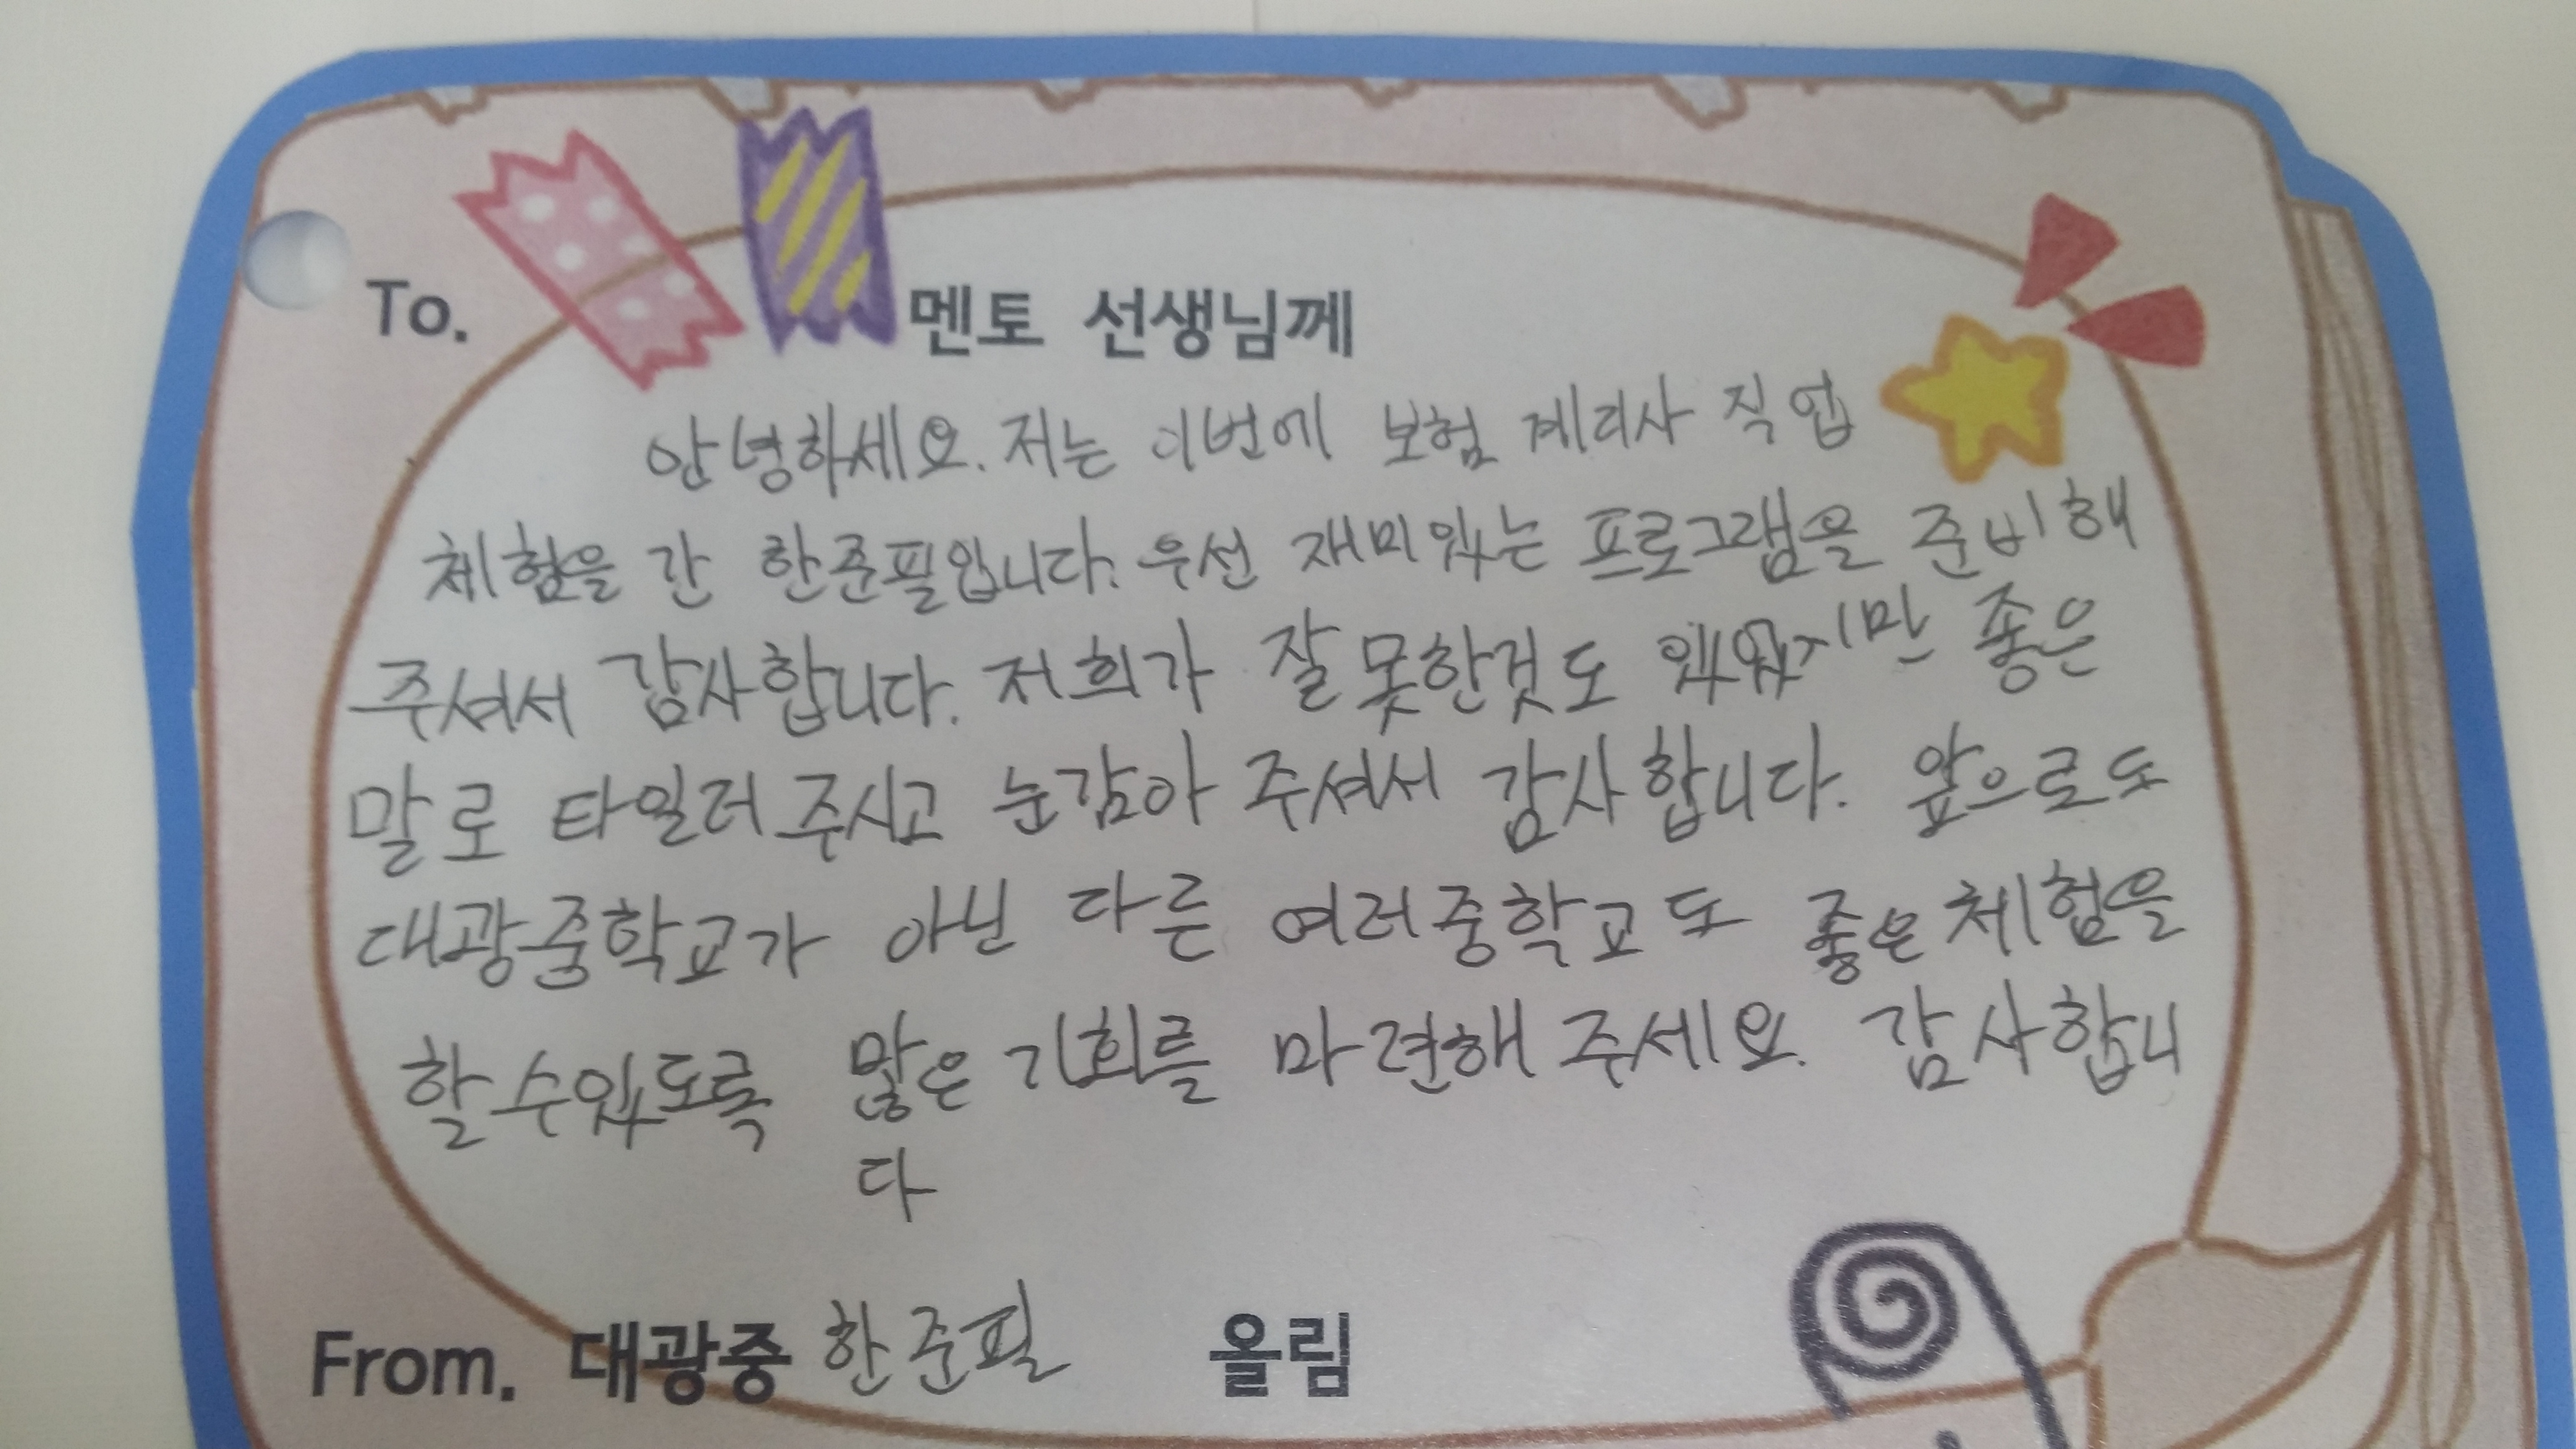 To. 멘토 선생님께
안녕하세요. 저는 이번에 보험 계리사 직업
체험을 간 한준필입니다. 우선 재미있는 프로그램을 준비해
주셔서 감사합니다. 저희가 잘못한것도 있었지만 좋은
말로 타일러 주시고 눈감아 주셔서 감사합니다. 앞으로도
대광중학교가 아닌 다른 여러중학교도 좋은 체험을
할 수있도록 많은 기회를 마련해 주세요. 감사합니
다
From. 대광중 한준필 올림